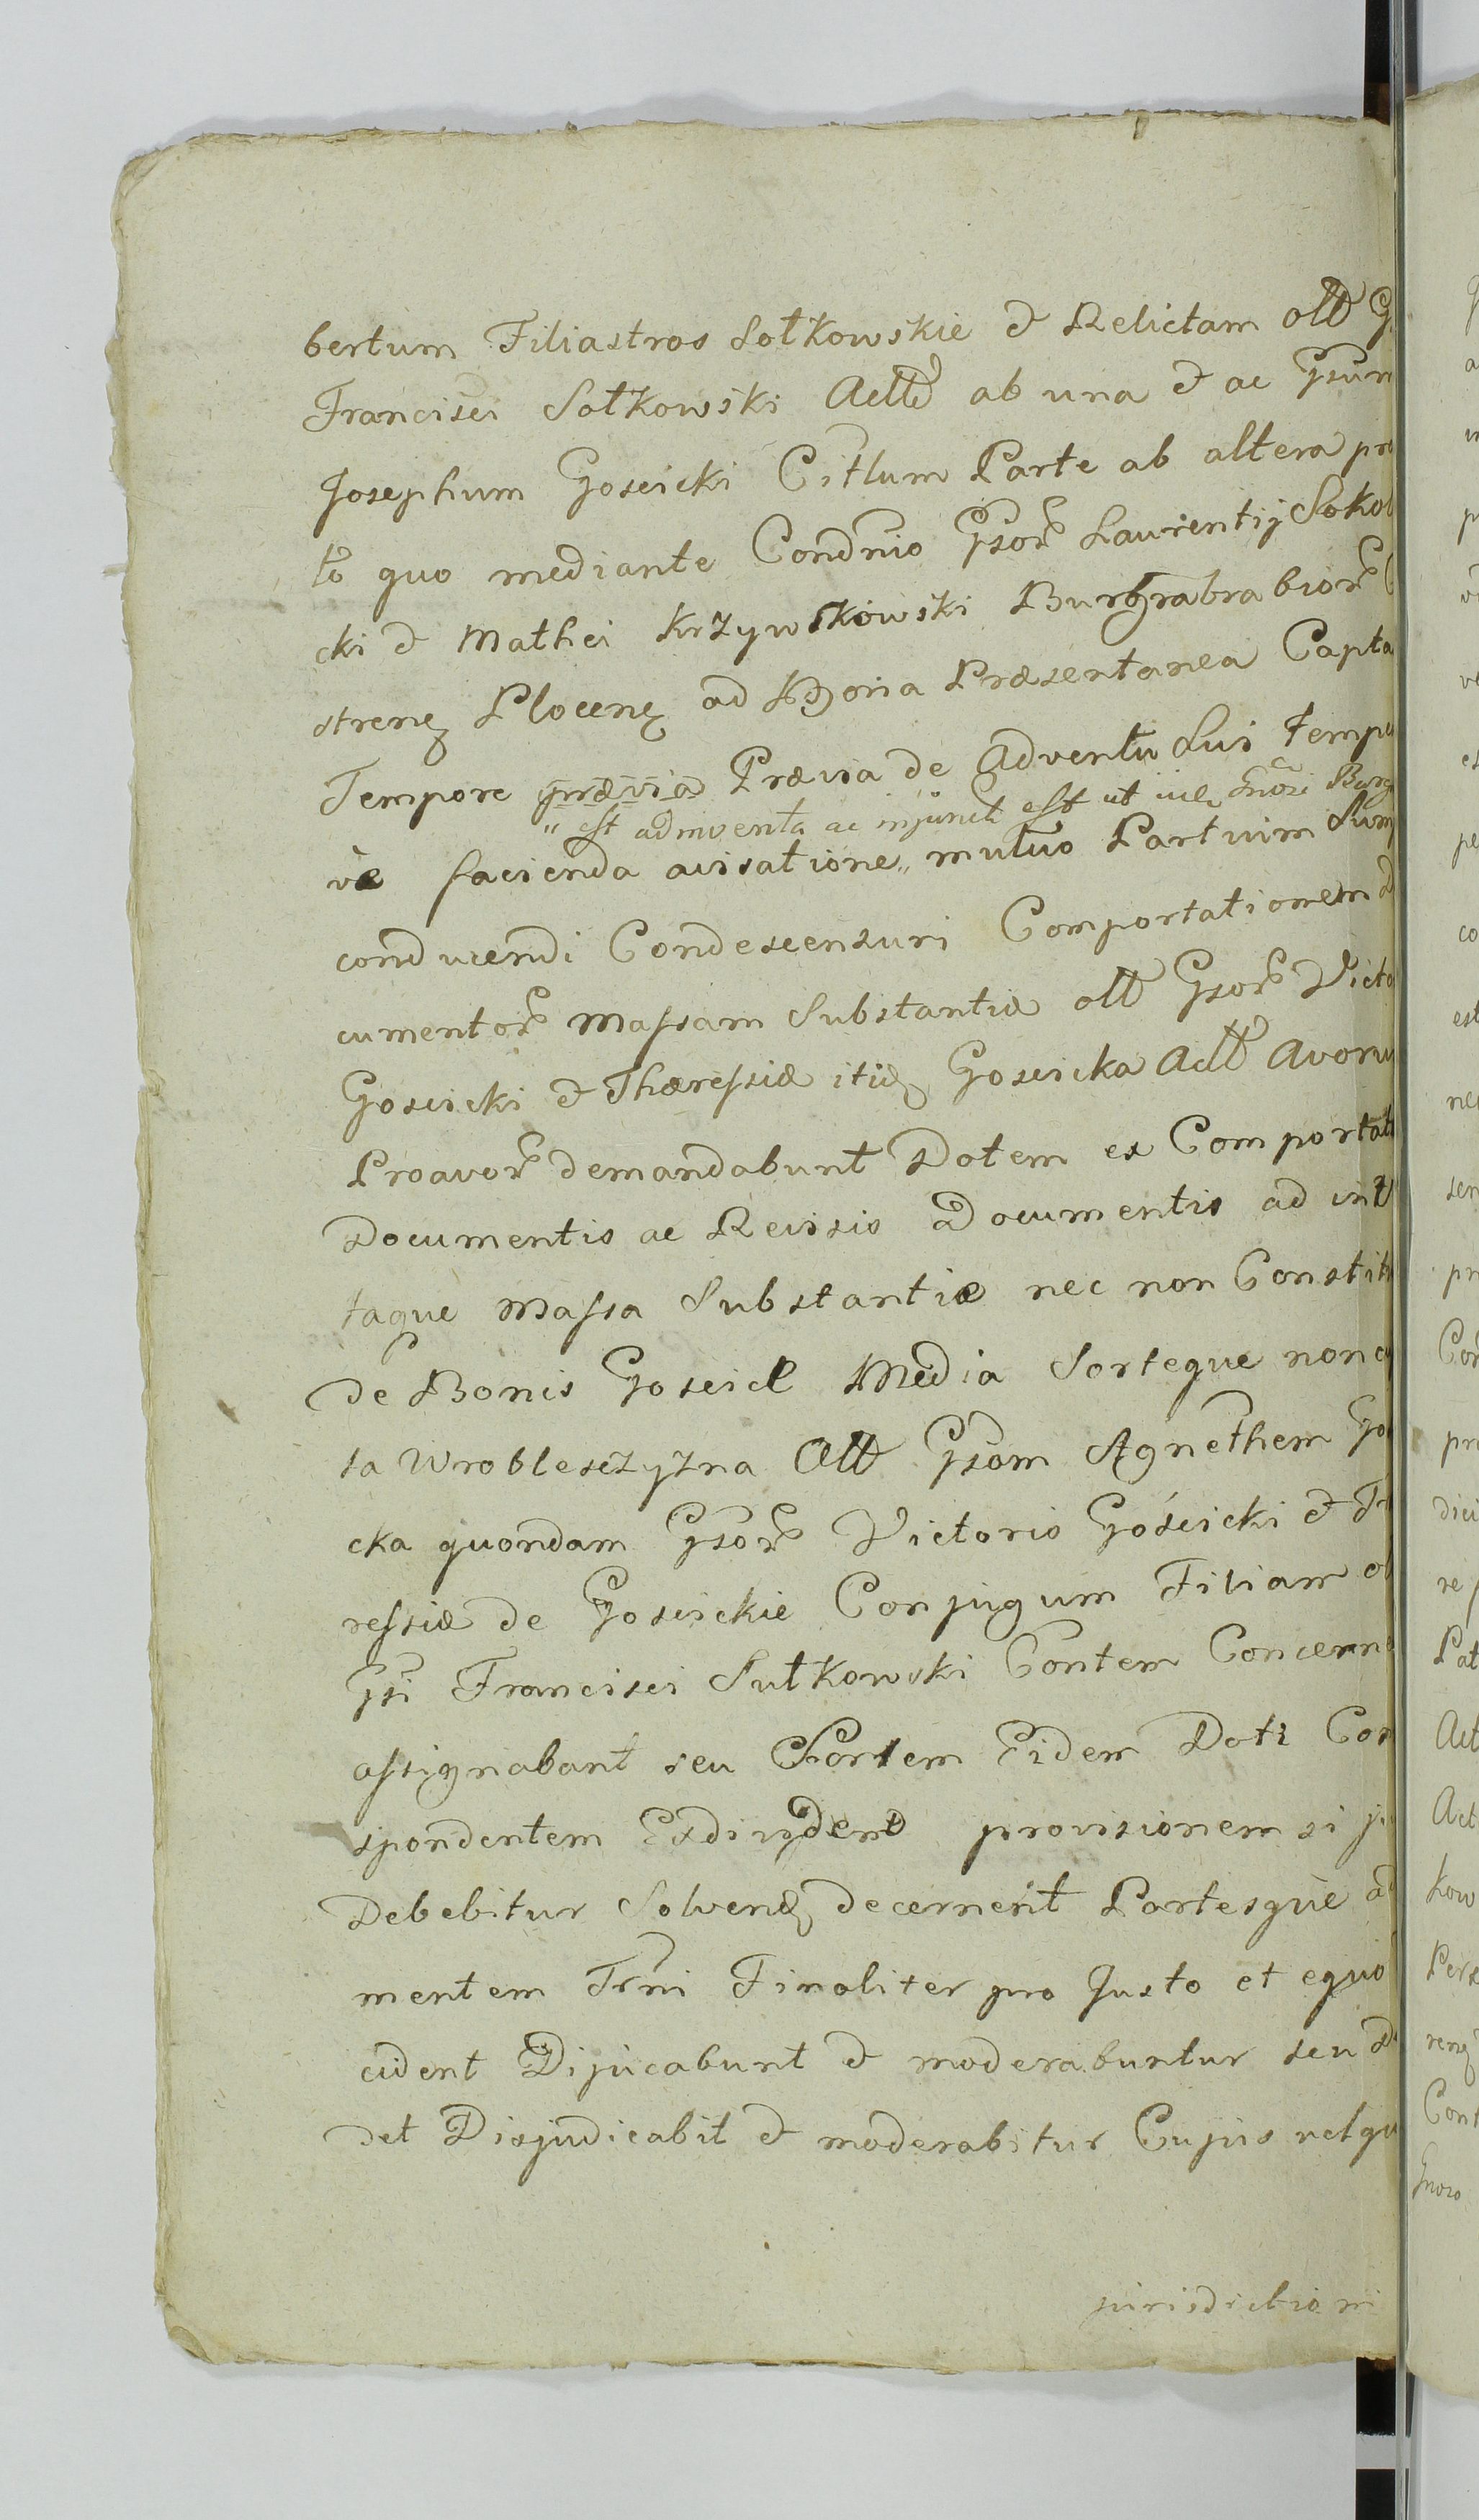 bertum Filiastros Sołkowskie & Relictam olld G
Francisci Sołkowski Actt ab una & ac Gsum
Josephum Goscicki Citlum Parte ab altera pr
to quo mediante Condnio Gsor Laurentij Sokol
cki & Mathei Krzywkowski Burgrabrabior
strenz Plocenz ad Bona Præsentanea Capta
Tempore prævia Prævia de Adventu Sui Temp
„ est adinventa ac injunct est ut
ve facienda avisatione „ mutuo Partium Sum
conducendi Condescensuri Comportationem
cumentor Massam Substantiæ olld Gsor Victo
Goscicki & Thæressiæ itid Goscicka Actt Avoru
Proavor demandabunt Dotem ex Comportat
Documentis ac Revisis Documentis ad
taque Massa Substantiæ nec non Constit
de Bonis Goscicl Media Sorteque
ta Wroblesczyzna Olld Gsom Agnethem Go
cka quondam Gsor Victoris Gościcki & T
ressiæ de Goscickie Conjugum Filiam
Gsi Francisci Sułkowski Contem Concern
assignabant seu Sortem Eidem Doti Cor
spondentem Exdivident provisionem si
Debebitur Solvend decernent Partesque
mentem Trni Finaliter pro Justo et equo
cident Dijucabunt & moderabuntur seu
det Disjudicabit & moderabitur Cujus
jurisdictioni